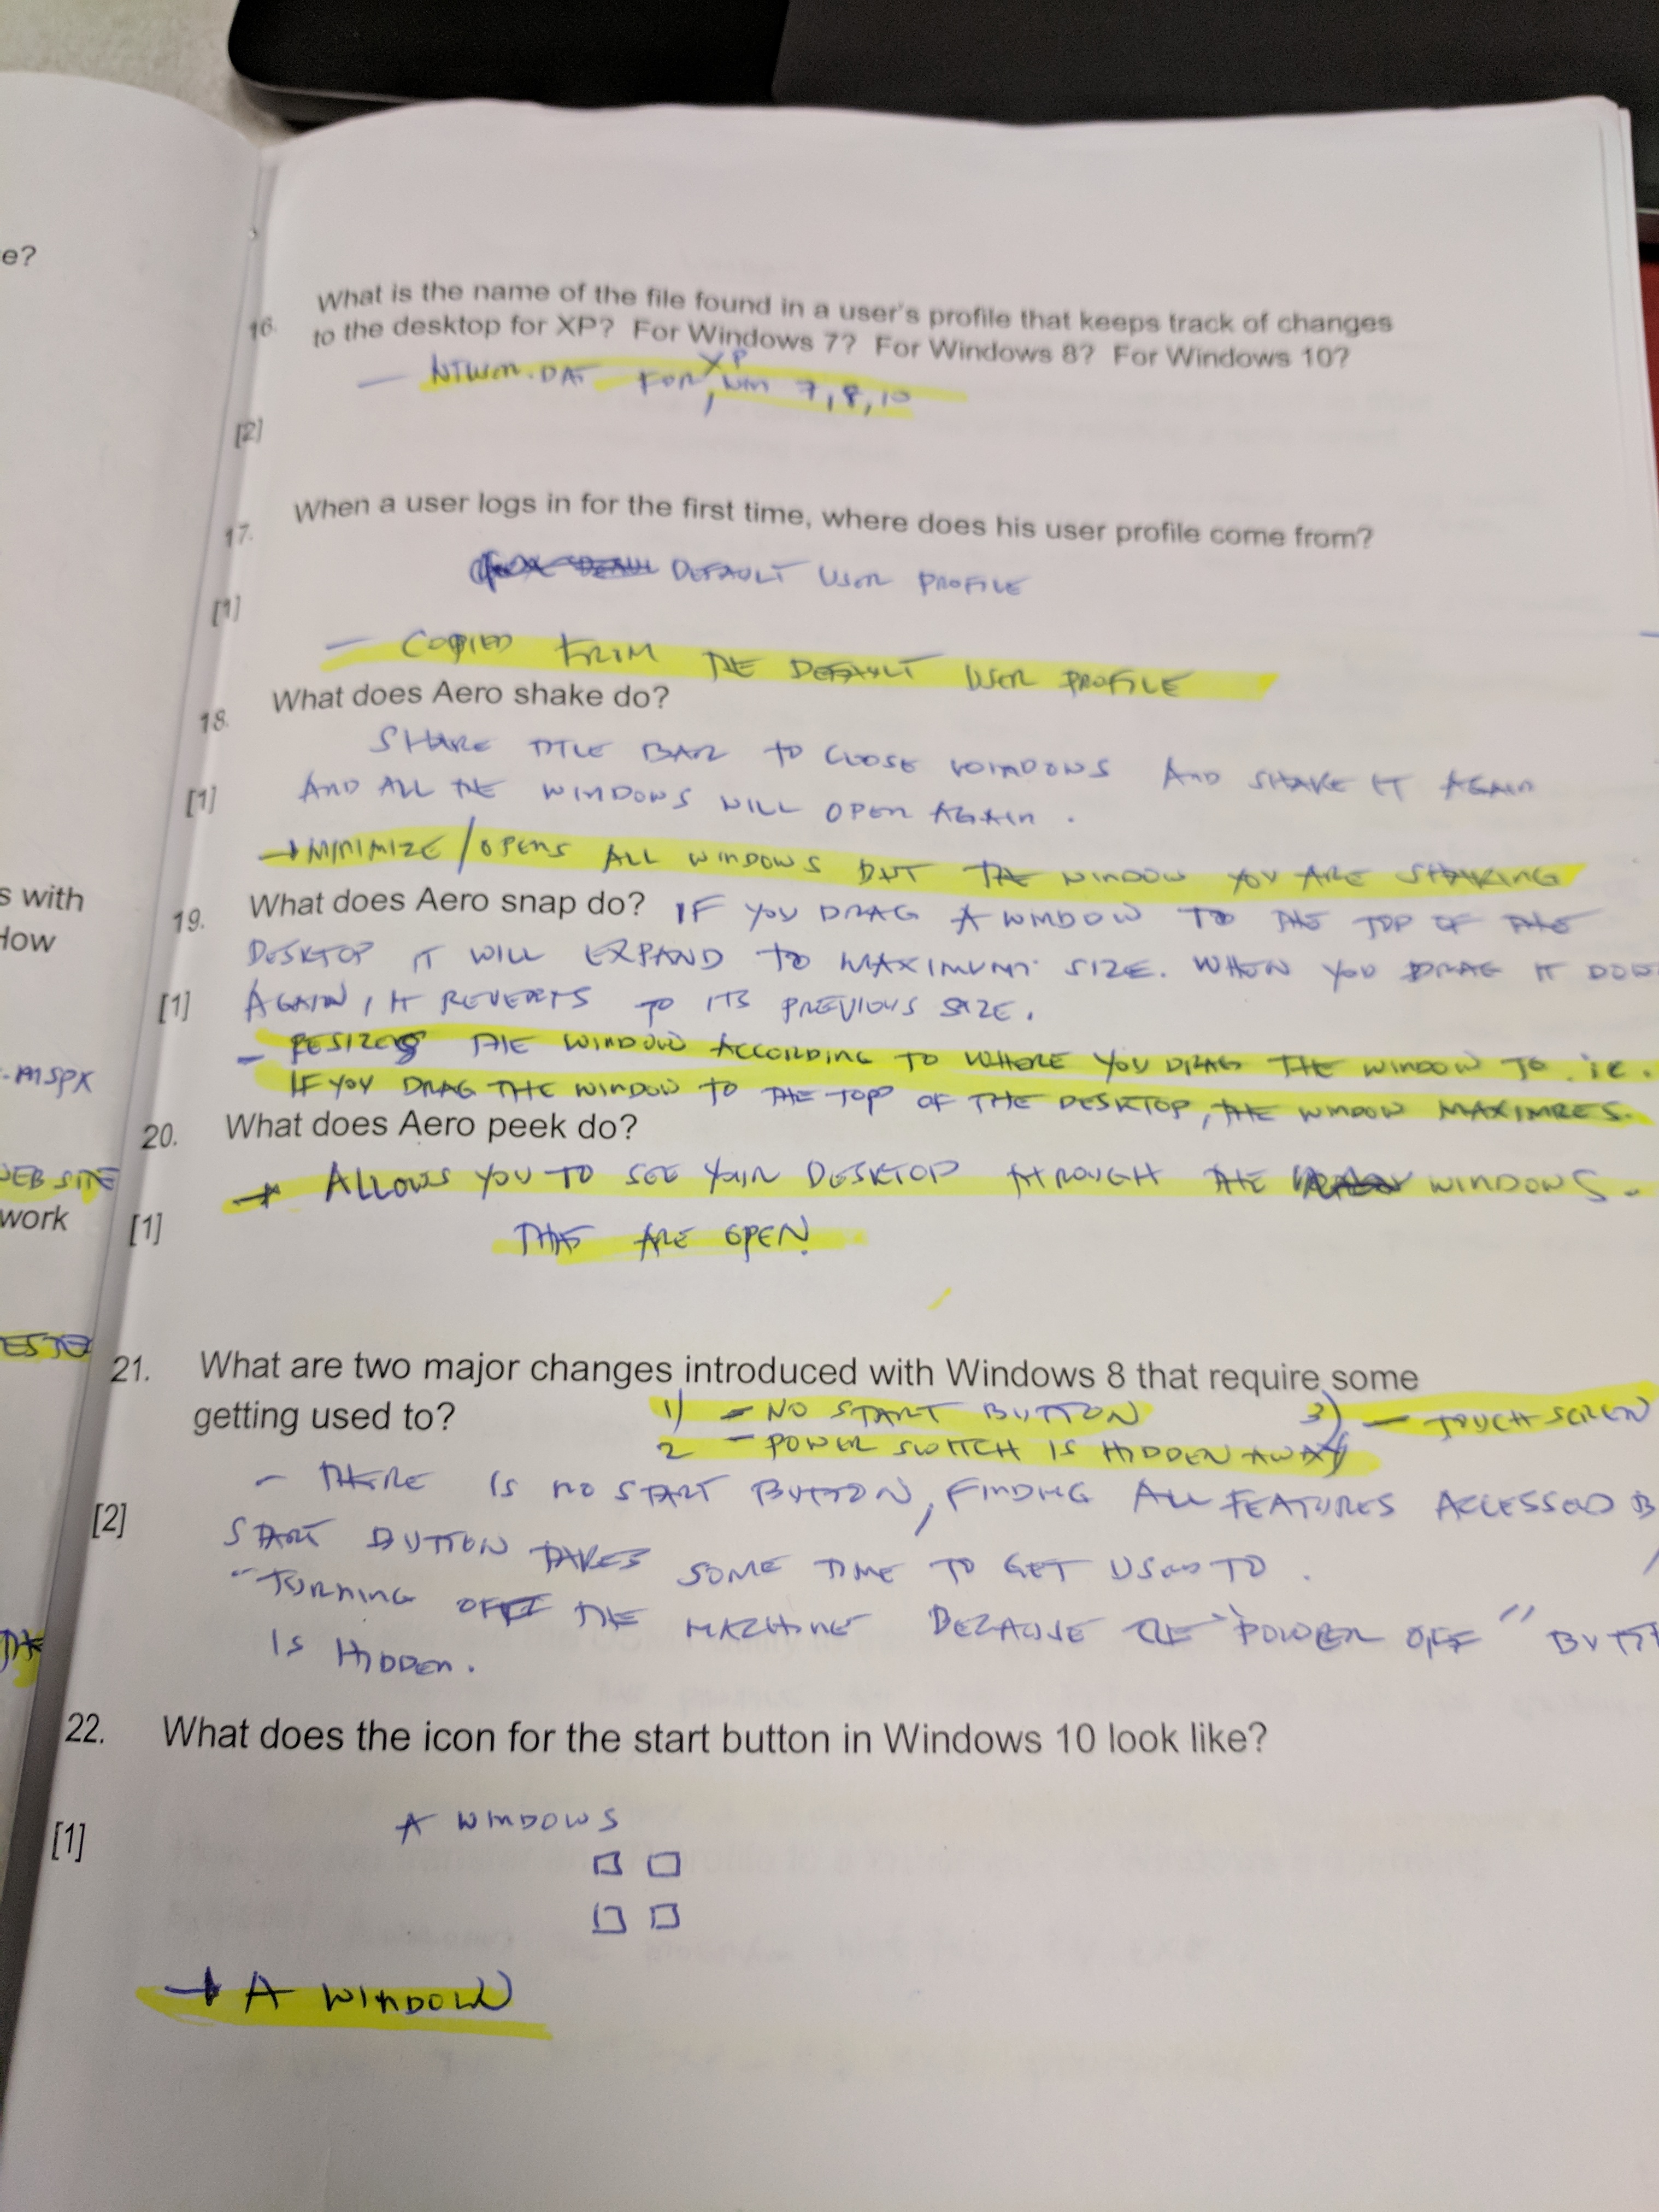 e?
16. What is the name of the file found in a user's profile that keeps track of changes
to the desktop for XP? For Windows 7? For Windows 8? For Windows 10?
XP
– .DAT FOR, WIN 7, 8, 10
[2]
17. When a user logs in for the first time, where does his user profile come from?
DEFAULT USER PROFILE
[1]
– COPIED FROM THE DEFAULT USER PROFILE
18. What does Aero shake do?
SHAKE TITLE BAR TO CLOSE WINDOWS AND SHAKE IT AGAIN
[1] AND ALL THE WINDOWS WILL OPEN AGAIN.
→ MINIMIZE / OPENS ALL WINDOWS BUT THE WINDOW YOU ARE SHAKING
s with
19. What does Aero snap do? IF YOU DRAG A WINDOW TO THE TOP OF THE
How
DESKTOP IT WILL EXPAND TO MAXIMUM SIZE. WHEN YOU DRAG IT DOW
[1] AGAIN, IT REVERTS TO ITS PREVIOUS SIZE.
– RESIZES THE WINDOW ACCORDING TO WHERE YOU DRAG THE WINDOW TO. ie.
.mspx
IF YOU DRAG THE WINDOW TO THE TOP OF THE DESKTOP, THE WINDOW MAXIMIZES.
20. What does Aero peek do?
WEB SITE
→ ALLOWS YOU TO SEE YOUR DESKTOP THROUGH THE WINDOWS
work
[1]
THAT ARE OPEN.
21. What are two major changes introduced with Windows 8 that require some
getting used to? 1) – NO START BUTTON 3) – TOUCH SCREEN
2 – POWER SWITCH IS HIDDEN AWAY
– THERE IS NO START BUTTON, FINDING ALL FEATURES ACCESSED B
[2]
START BUTTON TAKES SOME TIME TO GET USED TO.
– TURNING OFF THE MACHINE BECAUSE THE "POWER OFF" BUTT
IS HIDDEN.
22. What does the icon for the start button in Windows 10 look like?
A WINDOWS
[1]
→ A WINDOW